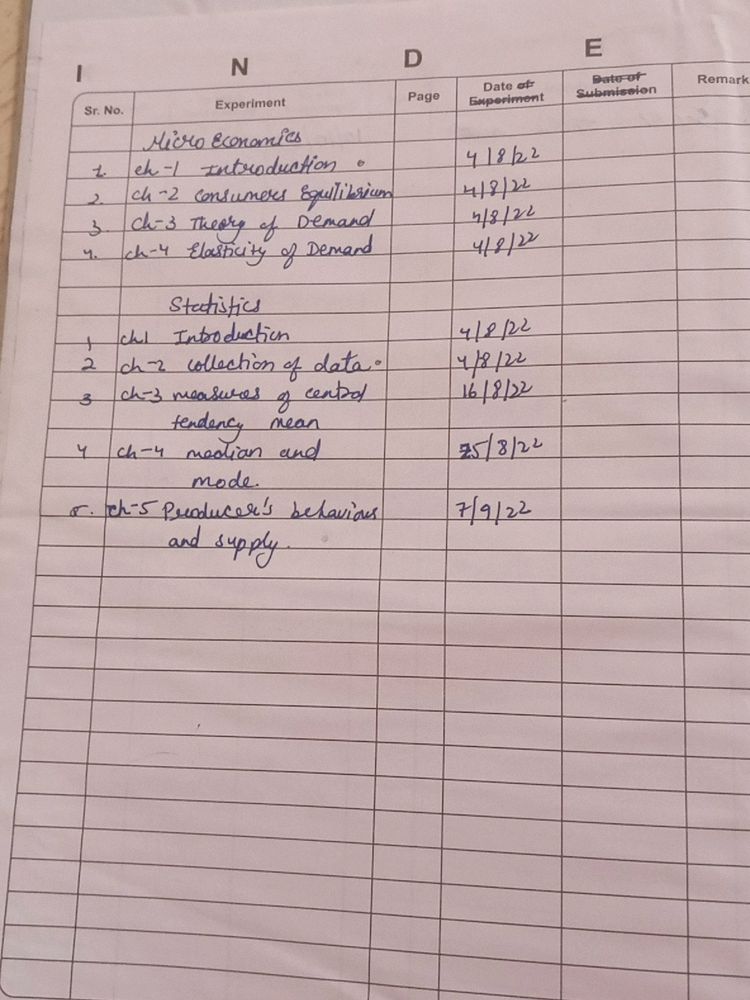 I N D E
Sr. No. Experiment Page Date of Experiment Date of Submission Remark
Micro Economics
1. ch-1 Introduction 4/8/22
2. ch-2 Consumers Equilibrium 4/8/22
3. ch-3 Theory of Demand 4/8/22
4. ch-4 Elasticity of Demand 4/8/22
Statistics
1 ch1 Introduction 4/8/22
2 ch-2 collection of data. 4/8/22
3 ch-3 measures of central 16/8/22
tendency mean
4 ch-4 median and 25/8/22
mode.
5. ch-5 Producer's behaviour 7/9/22
and supply.